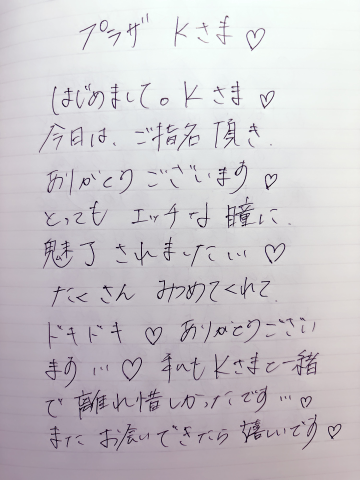 プラザ Kさま♡
はじめまして。Kさま♡
今日は、ご指名頂き、
ありがとうございます♡
とっても エッチな瞳に、
魅了されました…♡
たくさん みつめてくれて、
ドキドキ♡ ありがとうござい
ます…♡ 私もKさまと一緒
で離れ惜しかったです…♡
また お会いできたら 嬉しいです♡